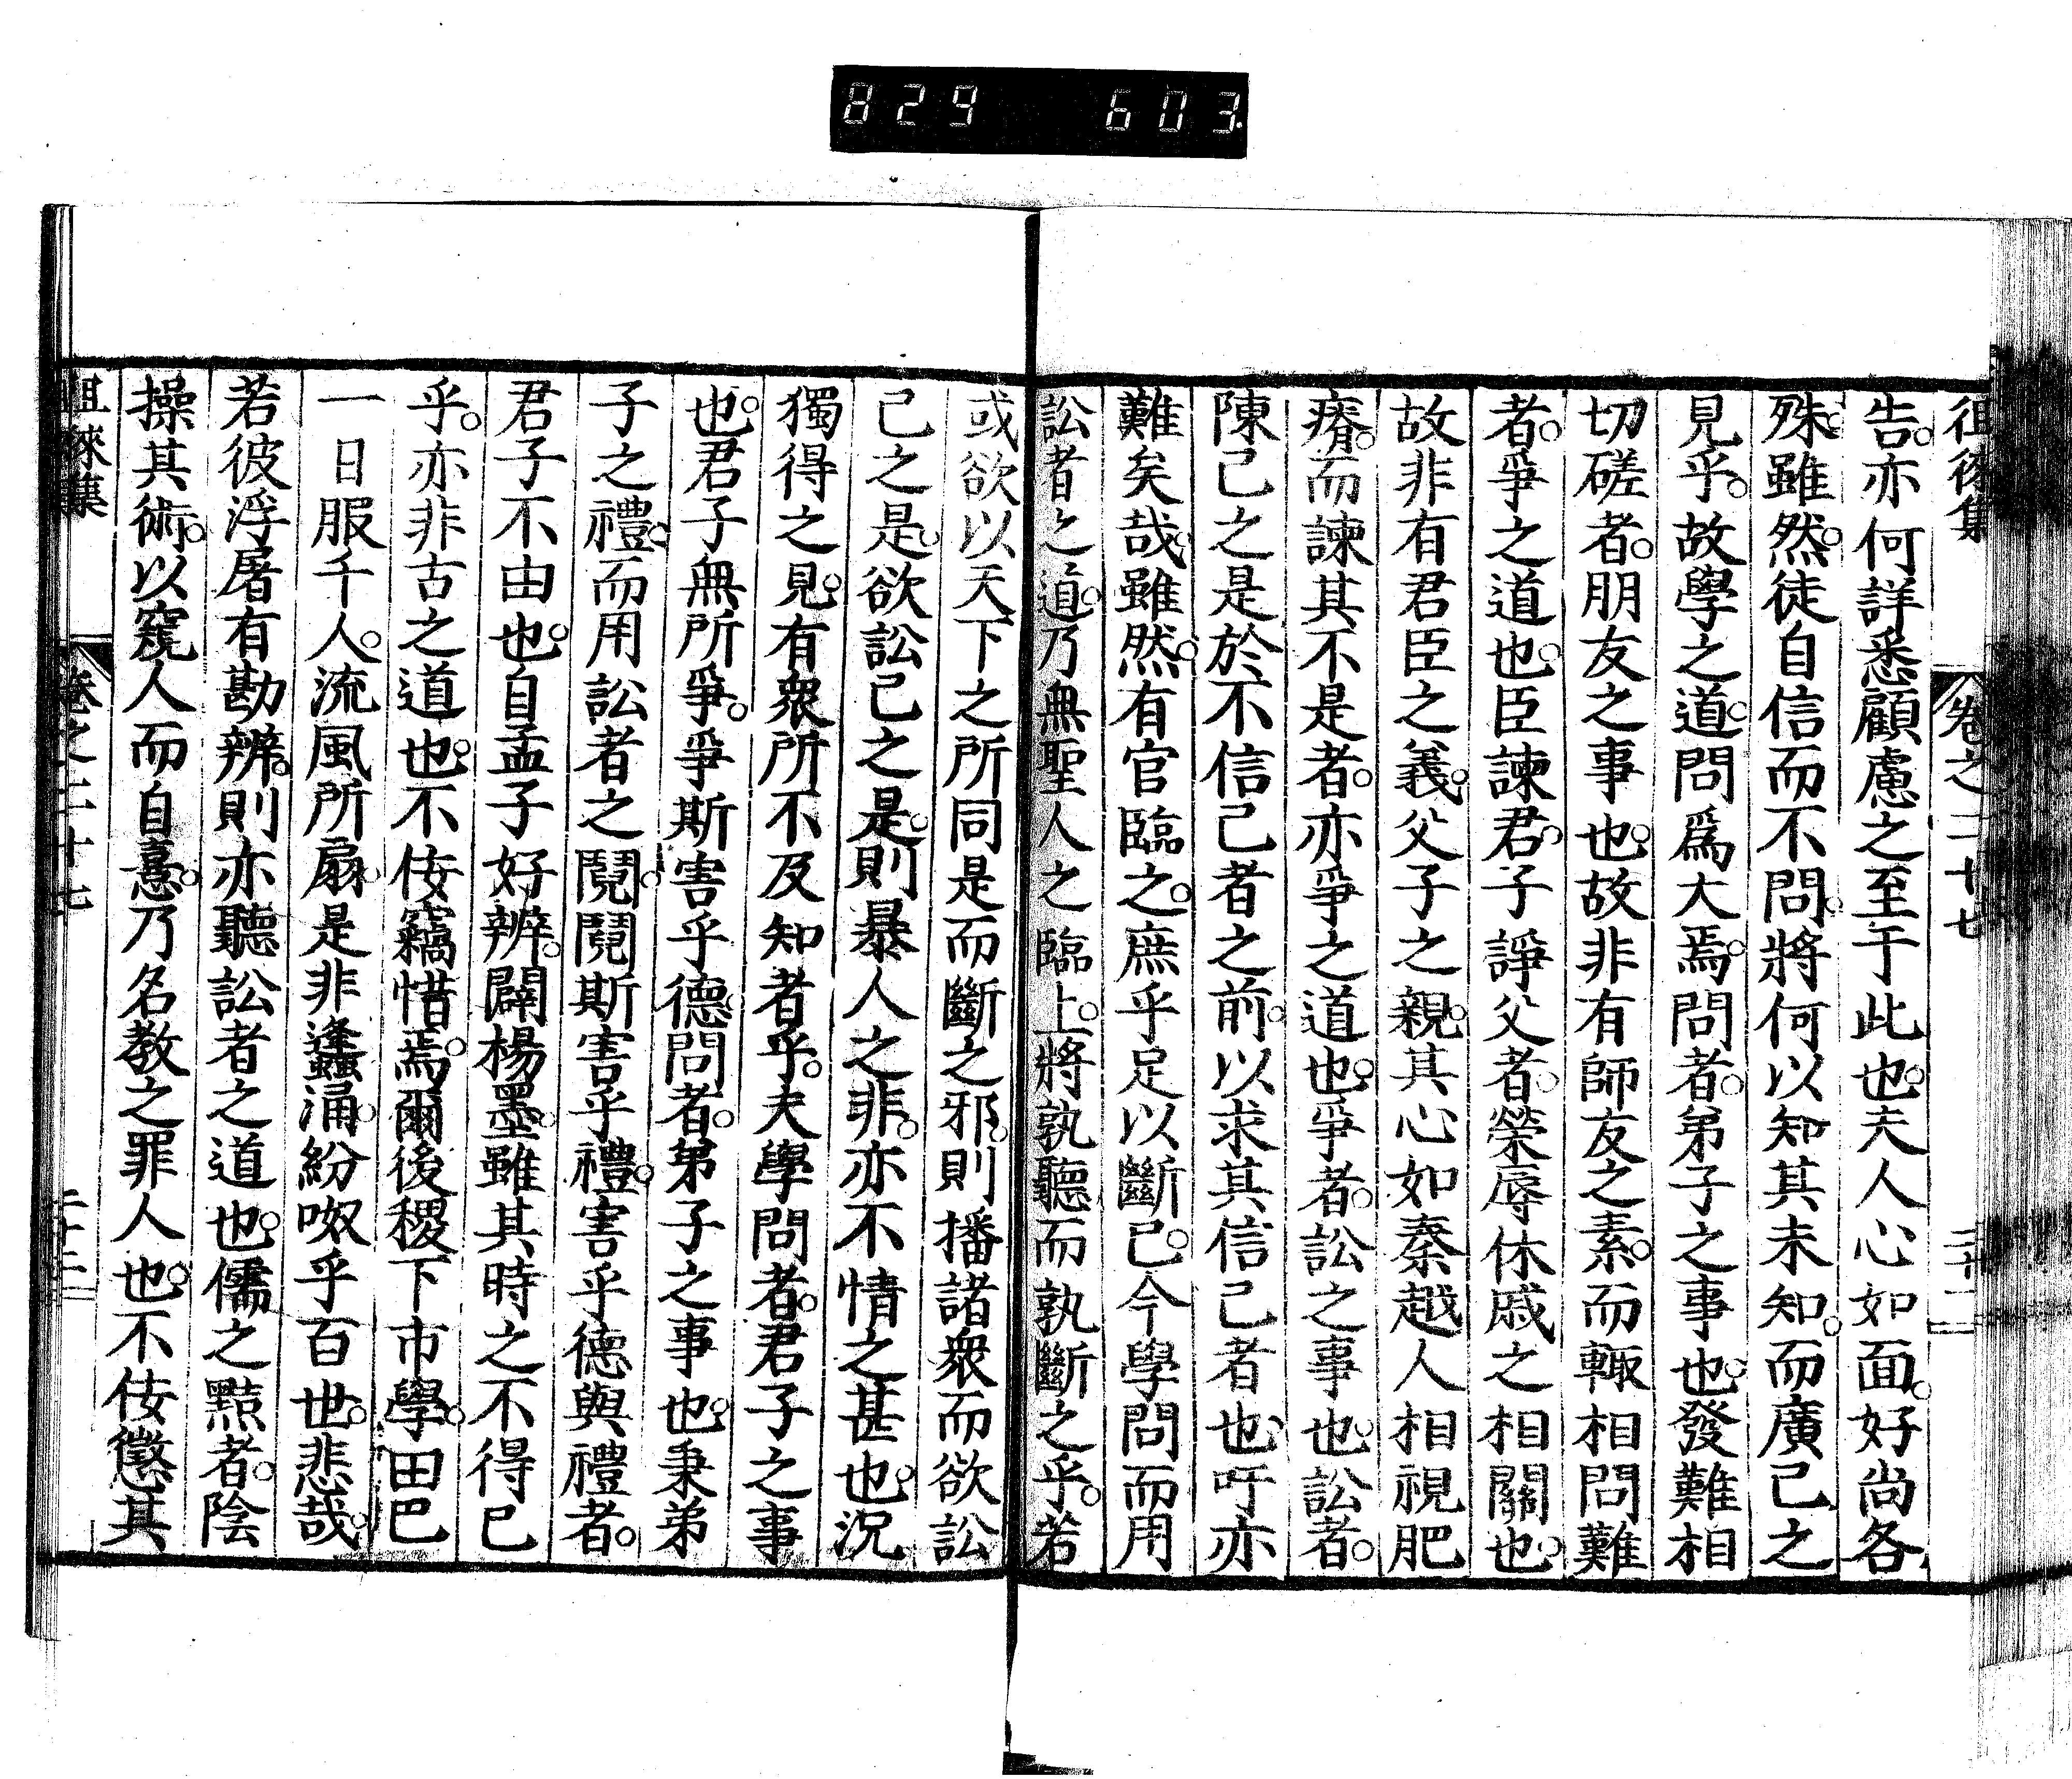 829 603
徂徠集 卷之二十七 二十一
告。亦何詳悉顧慮之至于此也。夫人心如面。好尚各
殊。雖然。徒自信而不問。將何以知其未知。而廣己之
見乎。故學之道。問爲大焉。問者。弟子之事也。發難相
切磋者。朋友之事也。故非有師友之素。而輙相問難
者。爭之道也。臣諫君。子諍父者。榮辱休戚之相關也。
故非有君臣之義。父子之親。其心如秦越人相視肥
瘠。而諫其不是者。亦爭之道也。爭者。訟之事也。訟者。
陳己之是於不信己者之前。以求其信己者也。吁亦
難矣哉。雖然。有官臨之。庶乎足以斷已。今學問而用
訟者之道。乃無聖人之臨上。將孰聽而孰斷之乎。若
或欲以天下之所同是而斷之邪。則播諸衆而欲訟
己之是。欲訟己之是。則暴人之非。亦不情之甚也。況
獨得之見。有衆所不及知者乎。夫學問者。君子之事
也。君子無所爭。爭斯害乎德。問者。弟子之事也。秉弟
子之禮。而用訟者之鬩。鬩斯害乎禮。害乎德與禮者。
君子不由也。自孟子好辨。闢楊墨。雖其時之不得已
乎。亦非古之道也。不侫竊惜焉。爾後稷下市學。田巴
一日服千人。流風所扇。是非蠭涌。紛呶乎百世。悲哉。
若彼浮屠有勘辨。則亦聽訟者之道也。儒之黠者。陰
操其術。以窺人而自憙。乃名教之罪人也。不侫懲其
徂徠集 卷之二十七 二十二